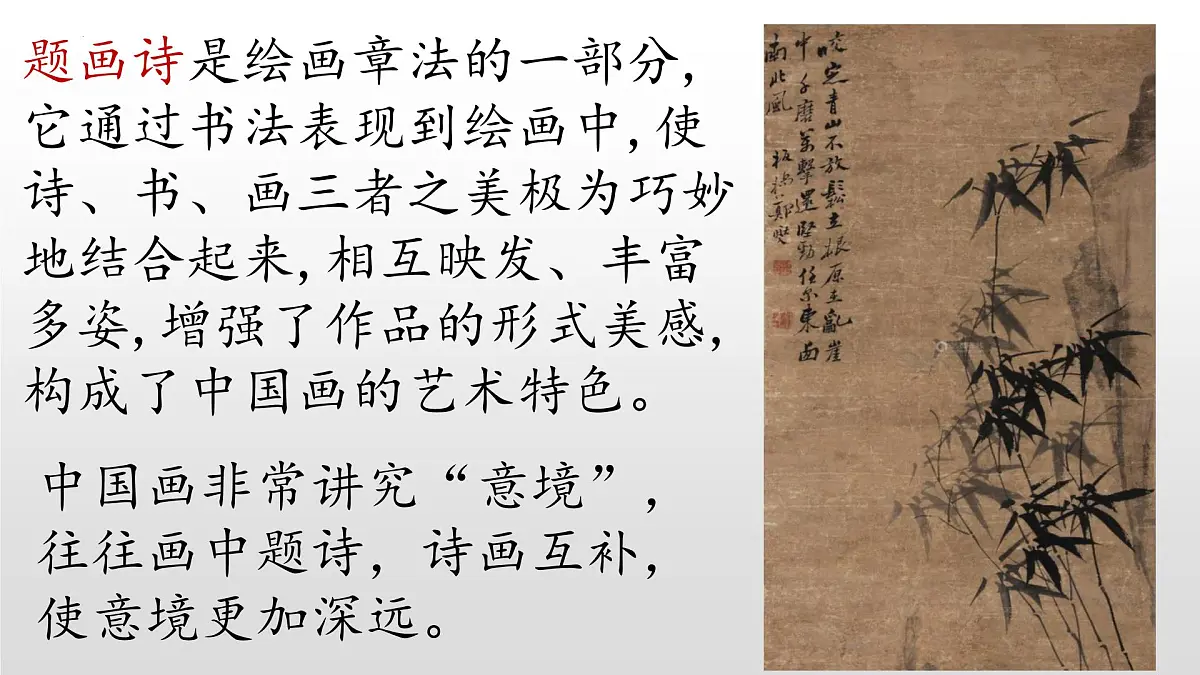 题画诗是绘画章法的一部分,
它通过书法表现到绘画中,使
诗、书、画三者之美极为巧妙
地结合起来,相互映发、丰富
多姿,增强了作品的形式美感,
构成了中国画的艺术特色。
中国画非常讲究“意境”，
往往画中题诗，诗画互补，
使意境更加深远。
咬定青山不放鬆立根原在亂崖
中千磨萬擊還堅勁任尔東西
南北風 板橋鄭燮